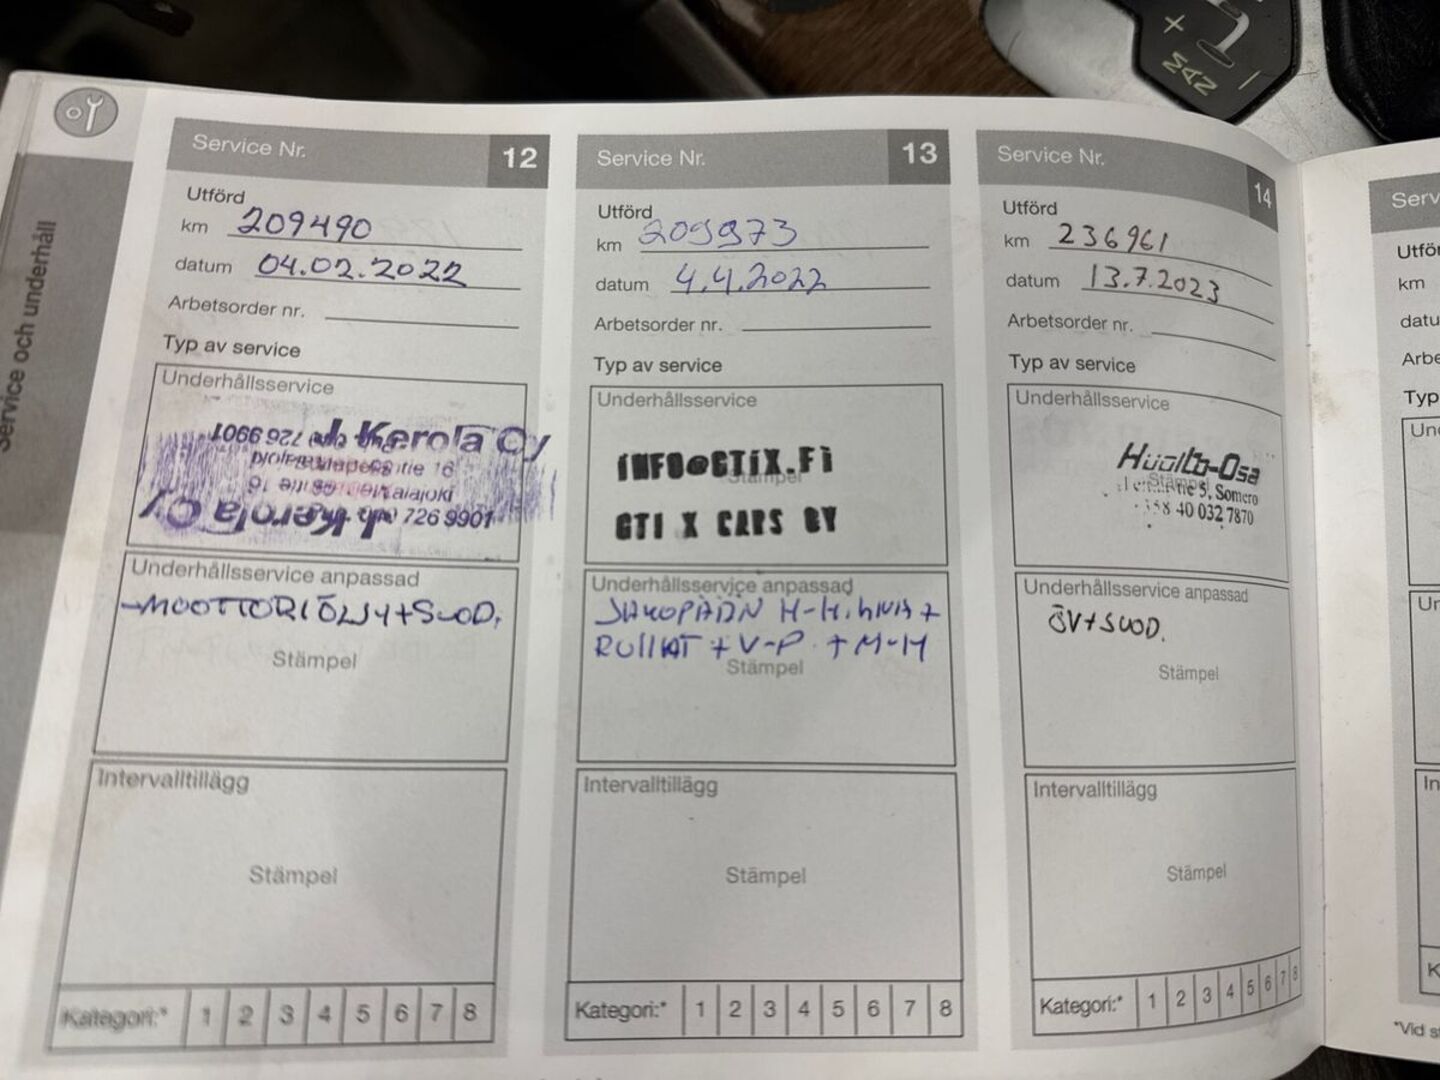 +
MAN
−
Service och underhåll
Service Nr. 12
Utförd
km 209490
datum 04.02.2022
Arbetsorder nr.
Typ av service
Underhållsservice
J Kerola Oy
726 9901
tie 16
Kalajoki
726 9901
J Kerola Oy
Underhållsservice anpassad
-MOOTTORIÖLJY+SUOD.
Stämpel
Intervalltillägg
Stämpel
Kategori:* 1 2 3 4 5 6 7 8
Service Nr. 13
Utförd
km 209973
datum 4.4.2022
Arbetsorder nr.
Typ av service
Underhållsservice
INFO@GTIX.FI
Stämpel
GTI X CARS OY
Underhållsservice anpassad
JAKOPÄÄN H-HIHNA +
RULLAT + V-P. + M-M
Stämpel
Intervalltillägg
Stämpel
Kategori:* 1 2 3 4 5 6 7 8
Service Nr. 14
Utförd
km 236961
datum 13.7.2023
Arbetsorder nr.
Typ av service
Underhållsservice
Huolto-Osa
Stämpel
tie 5, Somero
358 40 032 7870
Underhållsservice anpassad
ÖV+SUOD.
Stämpel
Intervalltillägg
Stämpel
Kategori:* 1 2 3 4 5 6 7 8
Serv
Utför
km
datu
Arbe
Typ
Un
Ur
In
K
*Vid s